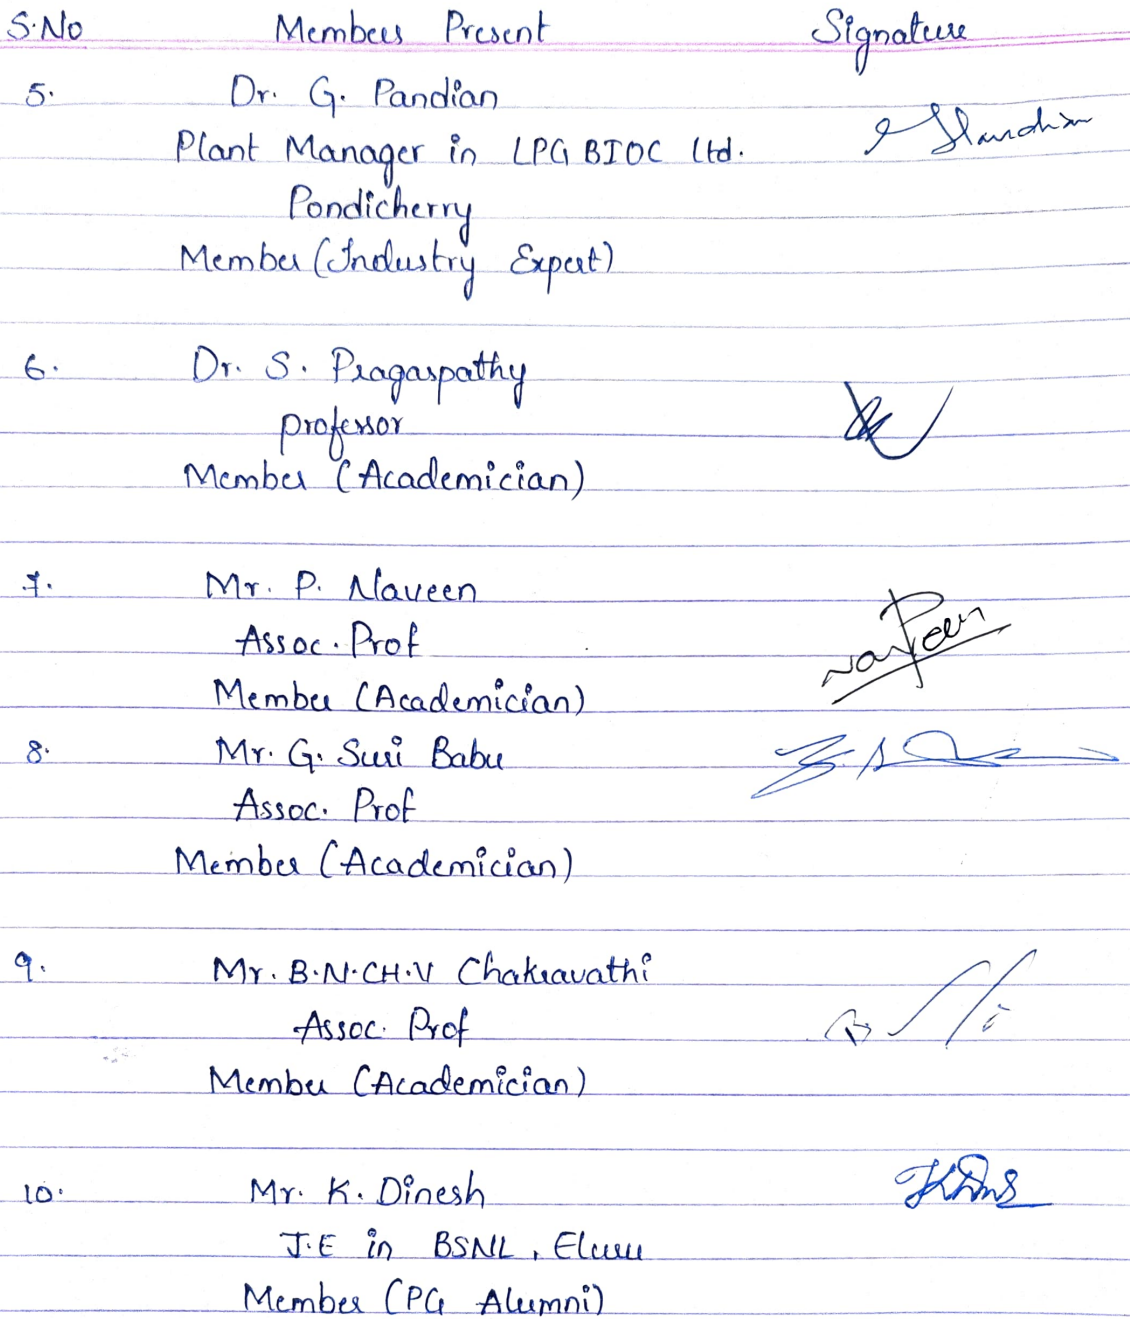 S.No Members Present Signature
5. Dr. G. Pandian
Plant Manager in LPG BIOC Ltd.
Pondicherry
Member (Industry Expert)
6. Dr. S. Pragaspathy
professor
Member (Academician)
7. Mr. P. Naveen
Assoc. Prof
Naveen
Member (Academician)
8. Mr. G. Suri Babu
Assoc. Prof
Member (Academician)
9. Mr. B.N.CH.V Chakravathi
Assoc. Prof
Member (Academician)
10. Mr. K. Dinesh
J.E in BSNL, Eluru
Member (PG Alumni)